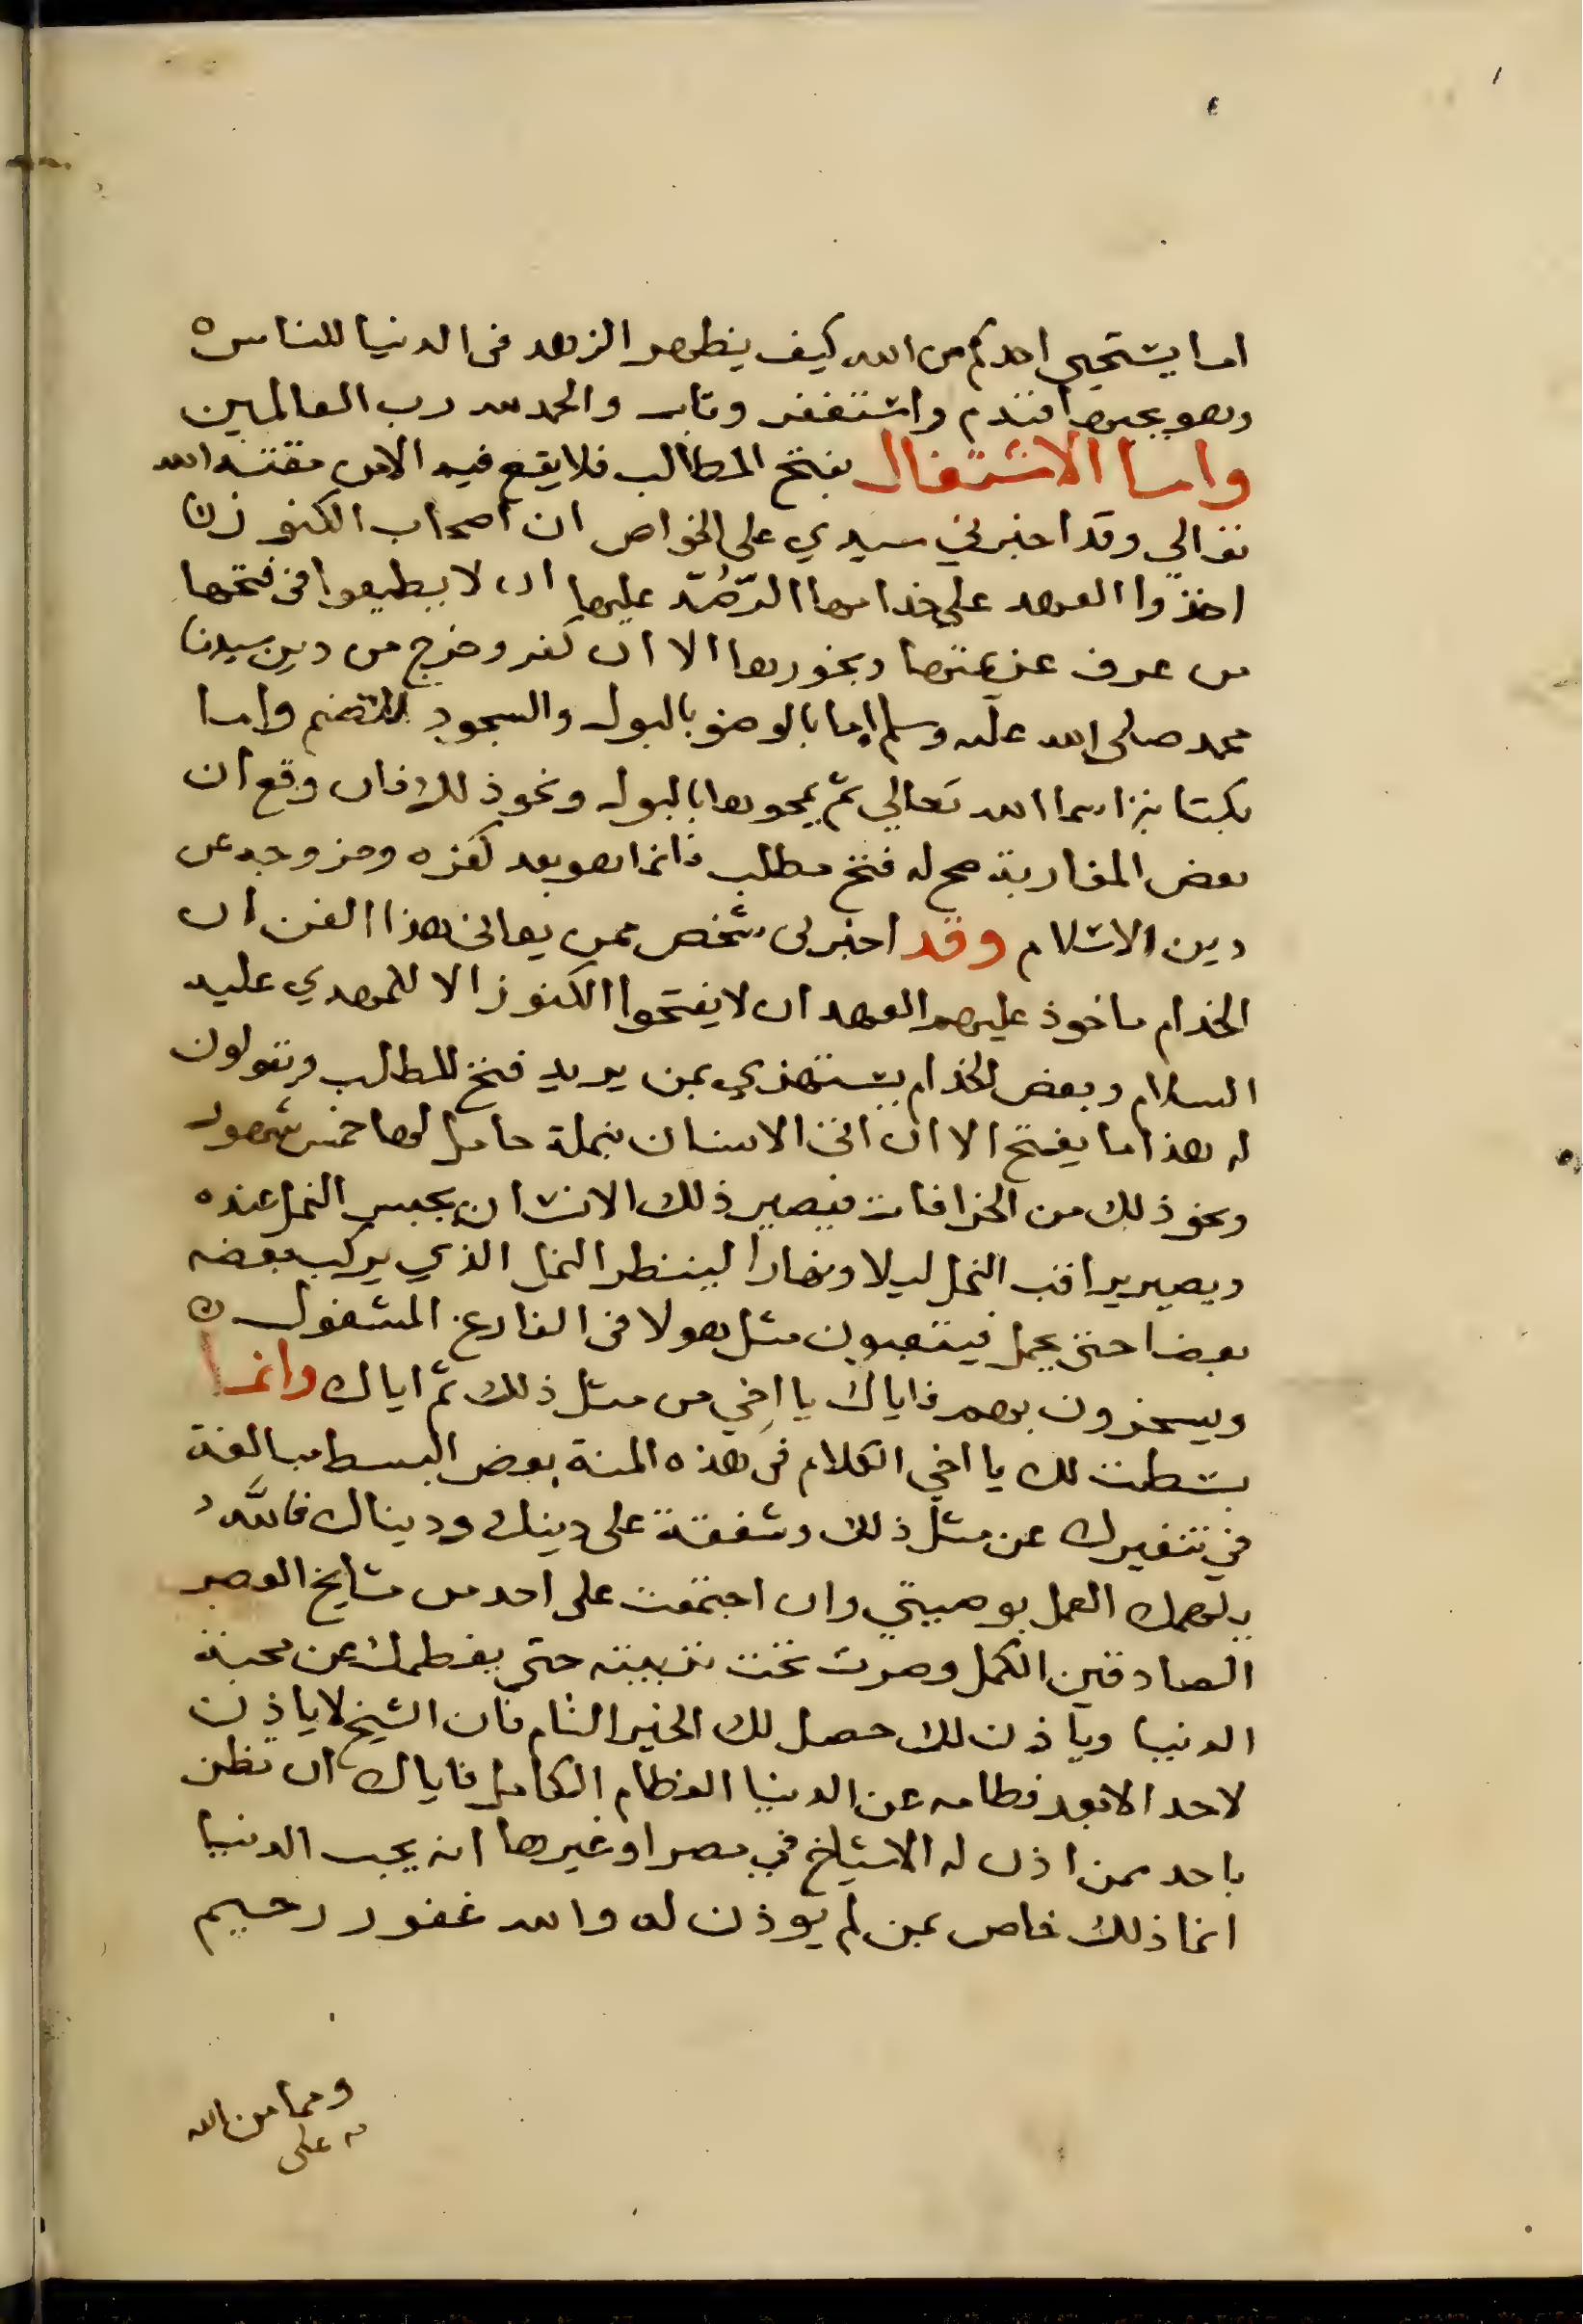 ٤
اما يستحيي احدكم من الله كيف يظهر الزهد في الدنيا للناس
وهو يحبها فتندم واستغفر وتاب والحمد لله رب العالمين
واما الاشتغال بفتح المطالب فلا يقع فيه الا من مقته الله
تعالي وقد اخبرني سيدي علي الخواص ان اصحاب الكنوز
اخذوا العهد على خدامها الرصد عليها ان لا يطيعوا في فتحها
من عرف عزيمتها وبخورها الا ان كفر وخرج من دين سيدنا
محمد صلى الله عليه وسلم اما بالوضو بالبول والسجود للصنم واما
بكتابة اسما الله تعالي ثم يمحوها بالبول ونحو ذلك فان وقع ان
بعض المغاربة صح له فتح مطلب فانما هو بعد كفره وخروجه عن
دين الاسلام وقد اخبرني شخص ممن يعاني هذا الفن ان
الخدام ماخوذ عليهم العهد ان لا يفتحوا الكنوز الا للمهدي عليه
السلام وبعض الخدام يستهزي بمن يريد فتح المطالب ويقولون
له هذا ما يفتح الا ان اتى الانسان بنملة حامل لها خمس شهور
ونحو ذلك من الخرافات فيصير ذلك الانسان يحبس النمل عنده
ويصير يراقب النمل ليلا ونهارا لينظر النمل الذي يركب بعضه
بعضا حتى يحمل فيتعبون مثل هولا في الفارغ المشغول
ويسخرون بهم فاياك يا اخي من مثل ذلك ثم اياك وانما
بسطت لك يا اخي الكلام في هذه المنة بعض البسط مبالغة
في تنفيرك عن مثل ذلك وشفقة على دينك ودنياك فالله
يلهمك العمل بوصيتي وان اجتمعت على احد من مشايخ العصر
الصادقين الكمل وصرت تحت تربيته حتى يفطمك عن محبة
الدنيا وياذن لك حصل لك الخير التام فان الشيخ لا ياذن
لاحد الا بعد فطامه عن الدنيا الفطام الكامل فاياك ان تظن
باحد ممن اذن له الاشياخ في مصر او غيرها انه يحب الدنيا
انما ذلك خاص بمن لم يوذن له والله غفور رحيم
ومما من الله
به على